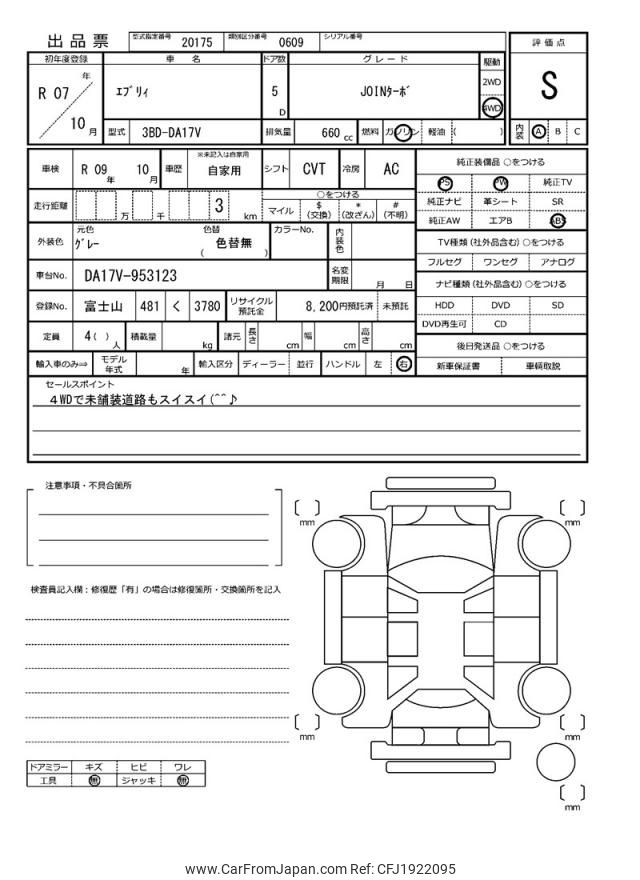 出品票 型式指定番号 20175 類別区分番号 0609 シリアル番号
評価点
S
内装 A B C
初年度登録 車名 ドア数 グレード 駆動
R 07 年 ｴﾌﾞﾘｨ 5 D JOINﾀｰﾎﾞ 2WD
4WD
10 月 型式 3BD-DA17V 排気量 660 cc 燃料 ガソリン 軽油 ( )
車検 R 09 年 10 月 車歴 ※未記入は自家用 自家用 シフト CVT 冷房 AC
純正装備品 ○をつける
PS PW 純正TV
純正ナビ 革シート SR
純正AW エアB ABS
走行距離 万 千 3 km ○をつける
マイル $ (交換) * (改ざん) # (不明)
外装色 元色 ｸﾞﾚｰ 色替 ( 色替無 ) カラーNo. 内装色
TV種類 (社外品含む) ○をつける
フルセグ ワンセグ アナログ
車台No. DA17V-953123 名変期限 月 日
ナビ種類 (社外品含む) ○をつける
HDD DVD SD
DVD再生可 CD
登録No. 富士山 481 く 3780 リサイクル預託金 8,200円預託済 未預託
定員 4 ( ) 人 積載量 kg 諸元 長さ cm 幅 cm 高さ cm
後日発送品 ○をつける
新車保証書 車輌取説
輸入車のみ⇒ モデル年式 年 輸入区分 ディーラー 並行 ハンドル 左 右
セールスポイント
4WDで未舗装道路もスイスイ(^^♪
注意事項・不具合箇所
検査員記入欄：修復歴「有」の場合は修復箇所・交換箇所を記入
[ ] mm
[ ] mm
[ ] mm
[ ] mm
[ ] mm
ドアミラー キズ ヒビ ワレ
工具 無 ジャッキ 無
www.CarFromJapan.com Ref: CFJ1922095